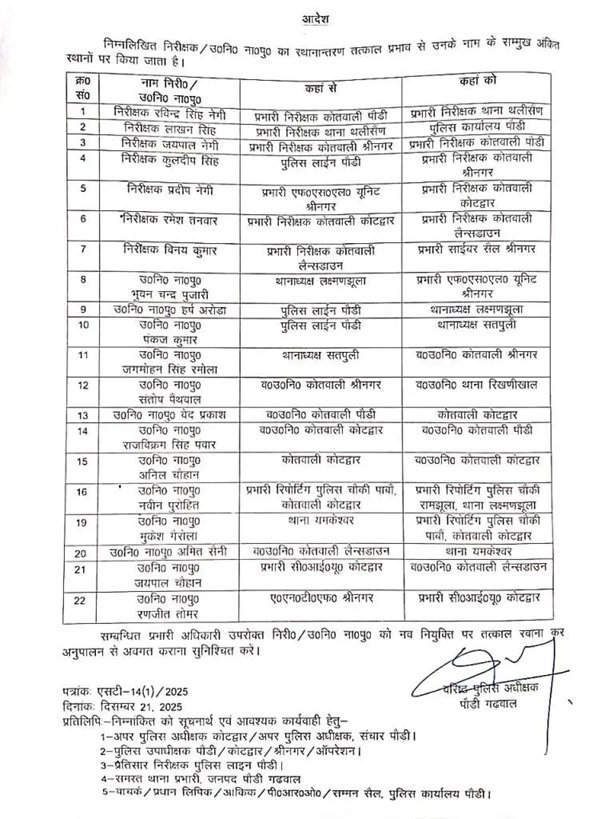 आदेश
निम्नलिखित निरीक्षक/उ०नि० ना०पु० का स्थानान्तरण तत्काल प्रभाव से उनके नाम के सम्मुख अंकित
स्थानों पर किया जाता है।
क्र० सं० नाम निरी०/ उ०नि० ना०पु० कहां से कहां को
1 निरीक्षक रविन्द्र सिंह नेगी प्रभारी निरीक्षक कोतवाली पौडी प्रभारी निरीक्षक थाना थलीसैण
2 निरीक्षक लाखन सिंह प्रभारी निरीक्षक थाना थलीसैण पुलिस कार्यालय पौडी
3 निरीक्षक जयपाल नेगी प्रभारी निरीक्षक कोतवाली श्रीनगर प्रभारी निरीक्षक कोतवाली पौडी
4 निरीक्षक कुलदीप सिंह पुलिस लाईन पौडी प्रभारी निरीक्षक कोतवाली श्रीनगर
5 निरीक्षक प्रदीप नेगी प्रभारी एफ०एस०एल० यूनिट श्रीनगर प्रभारी निरीक्षक कोतवाली कोटद्वार
6 निरीक्षक रमेश तनवार प्रभारी निरीक्षक कोतवाली कोटद्वार प्रभारी निरीक्षक कोतवाली लैन्सडाउन
7 निरीक्षक विनय कुमार प्रभारी निरीक्षक कोतवाली लैन्सडाउन प्रभारी साईबर सैल श्रीनगर
8 उ०नि० ना०पु० भुवन चन्द्र पुजारी थानाध्यक्ष लक्ष्मणझूला प्रभारी एफ०एस०एल० यूनिट श्रीनगर
9 उ०नि० ना०पु० हर्ष अरोडा पुलिस लाईन पौडी थानाध्यक्ष लक्ष्मणझूला
10 उ०नि० ना०पु० पंकज कुमार पुलिस लाईन पौडी थानाध्यक्ष सतपुली
11 उ०नि० ना०पु० जगमोहन सिंह रमोला थानाध्यक्ष सतपुली व०उ०नि० कोतवाली श्रीनगर
12 उ०नि० ना०पु० संतोष पैथवाल व०उ०नि० कोतवाली श्रीनगर व०उ०नि० थाना रिखणीखाल
13 उ०नि० ना०पु० वेद प्रकाश व०उ०नि० कोतवाली पौडी कोतवाली कोटद्वार
14 उ०नि० ना०पु० राजविक्रम सिंह पवार व०उ०नि० कोतवाली कोटद्वार व०उ०नि० कोतवाली पौडी
15 उ०नि० ना०पु० अनिल चौहान कोतवाली कोटद्वार व०उ०नि० कोतवाली कोटद्वार
16 उ०नि० ना०पु० नवीन पुरोहित प्रभारी रिपोर्टिंग पुलिस चौकी पाबौ, कोतवाली कोटद्वार प्रभारी रिपोर्टिंग पुलिस चौकी रामझूला, थाना लक्ष्मणझूला
19 उ०नि० ना०पु० मुकेश गैरोला थाना यमकेश्वर प्रभारी रिपोर्टिंग पुलिस चौकी पाबौ, कोतवाली कोटद्वार
20 उ०नि० ना०पु० अमित सैनी व०उ०नि० कोतवाली लैन्सडाउन थाना यमकेश्वर
21 उ०नि० ना०पु० जयपाल चौहान प्रभारी सी०आई०यू० कोटद्वार व०उ०नि० कोतवाली लैन्सडाउन
22 उ०नि० ना०पु० रणजीत तोमर ए०एन०टी०एफ० श्रीनगर प्रभारी सी०आई०यू० कोटद्वार
सम्बन्धित प्रभारी अधिकारी उपरोक्त निरी०/उ०नि० ना०पु० को नव नियुक्ति पर तत्काल रवाना कर
अनुपालन से अवगत कराना सुनिश्चित करें।
वरिष्ठ पुलिस अधीक्षक
पौडी गढवाल
पत्रांकः एसटी-14(1)/2025
दिनांकः दिसम्बर 21, 2025
प्रतिलिपिः-निम्नांकित को सूचनार्थ एवं आवश्यक कार्यवाही हेतु-
1-अपर पुलिस अधीक्षक कोटद्वार/अपर पुलिस अधीक्षक, संचार पौडी।
2-पुलिस उपाधीक्षक पौडी/कोटद्वार/श्रीनगर/ऑपरेशन।
3-प्रतिसार निरीक्षक पुलिस लाइन पौडी।
4-समस्त थाना प्रभारी, जनपद पौडी गढवाल
5-वाचक/प्रधान लिपिक/आंकिक/पी०आर०ओ०/सम्मन सैल, पुलिस कार्यालय पौडी।